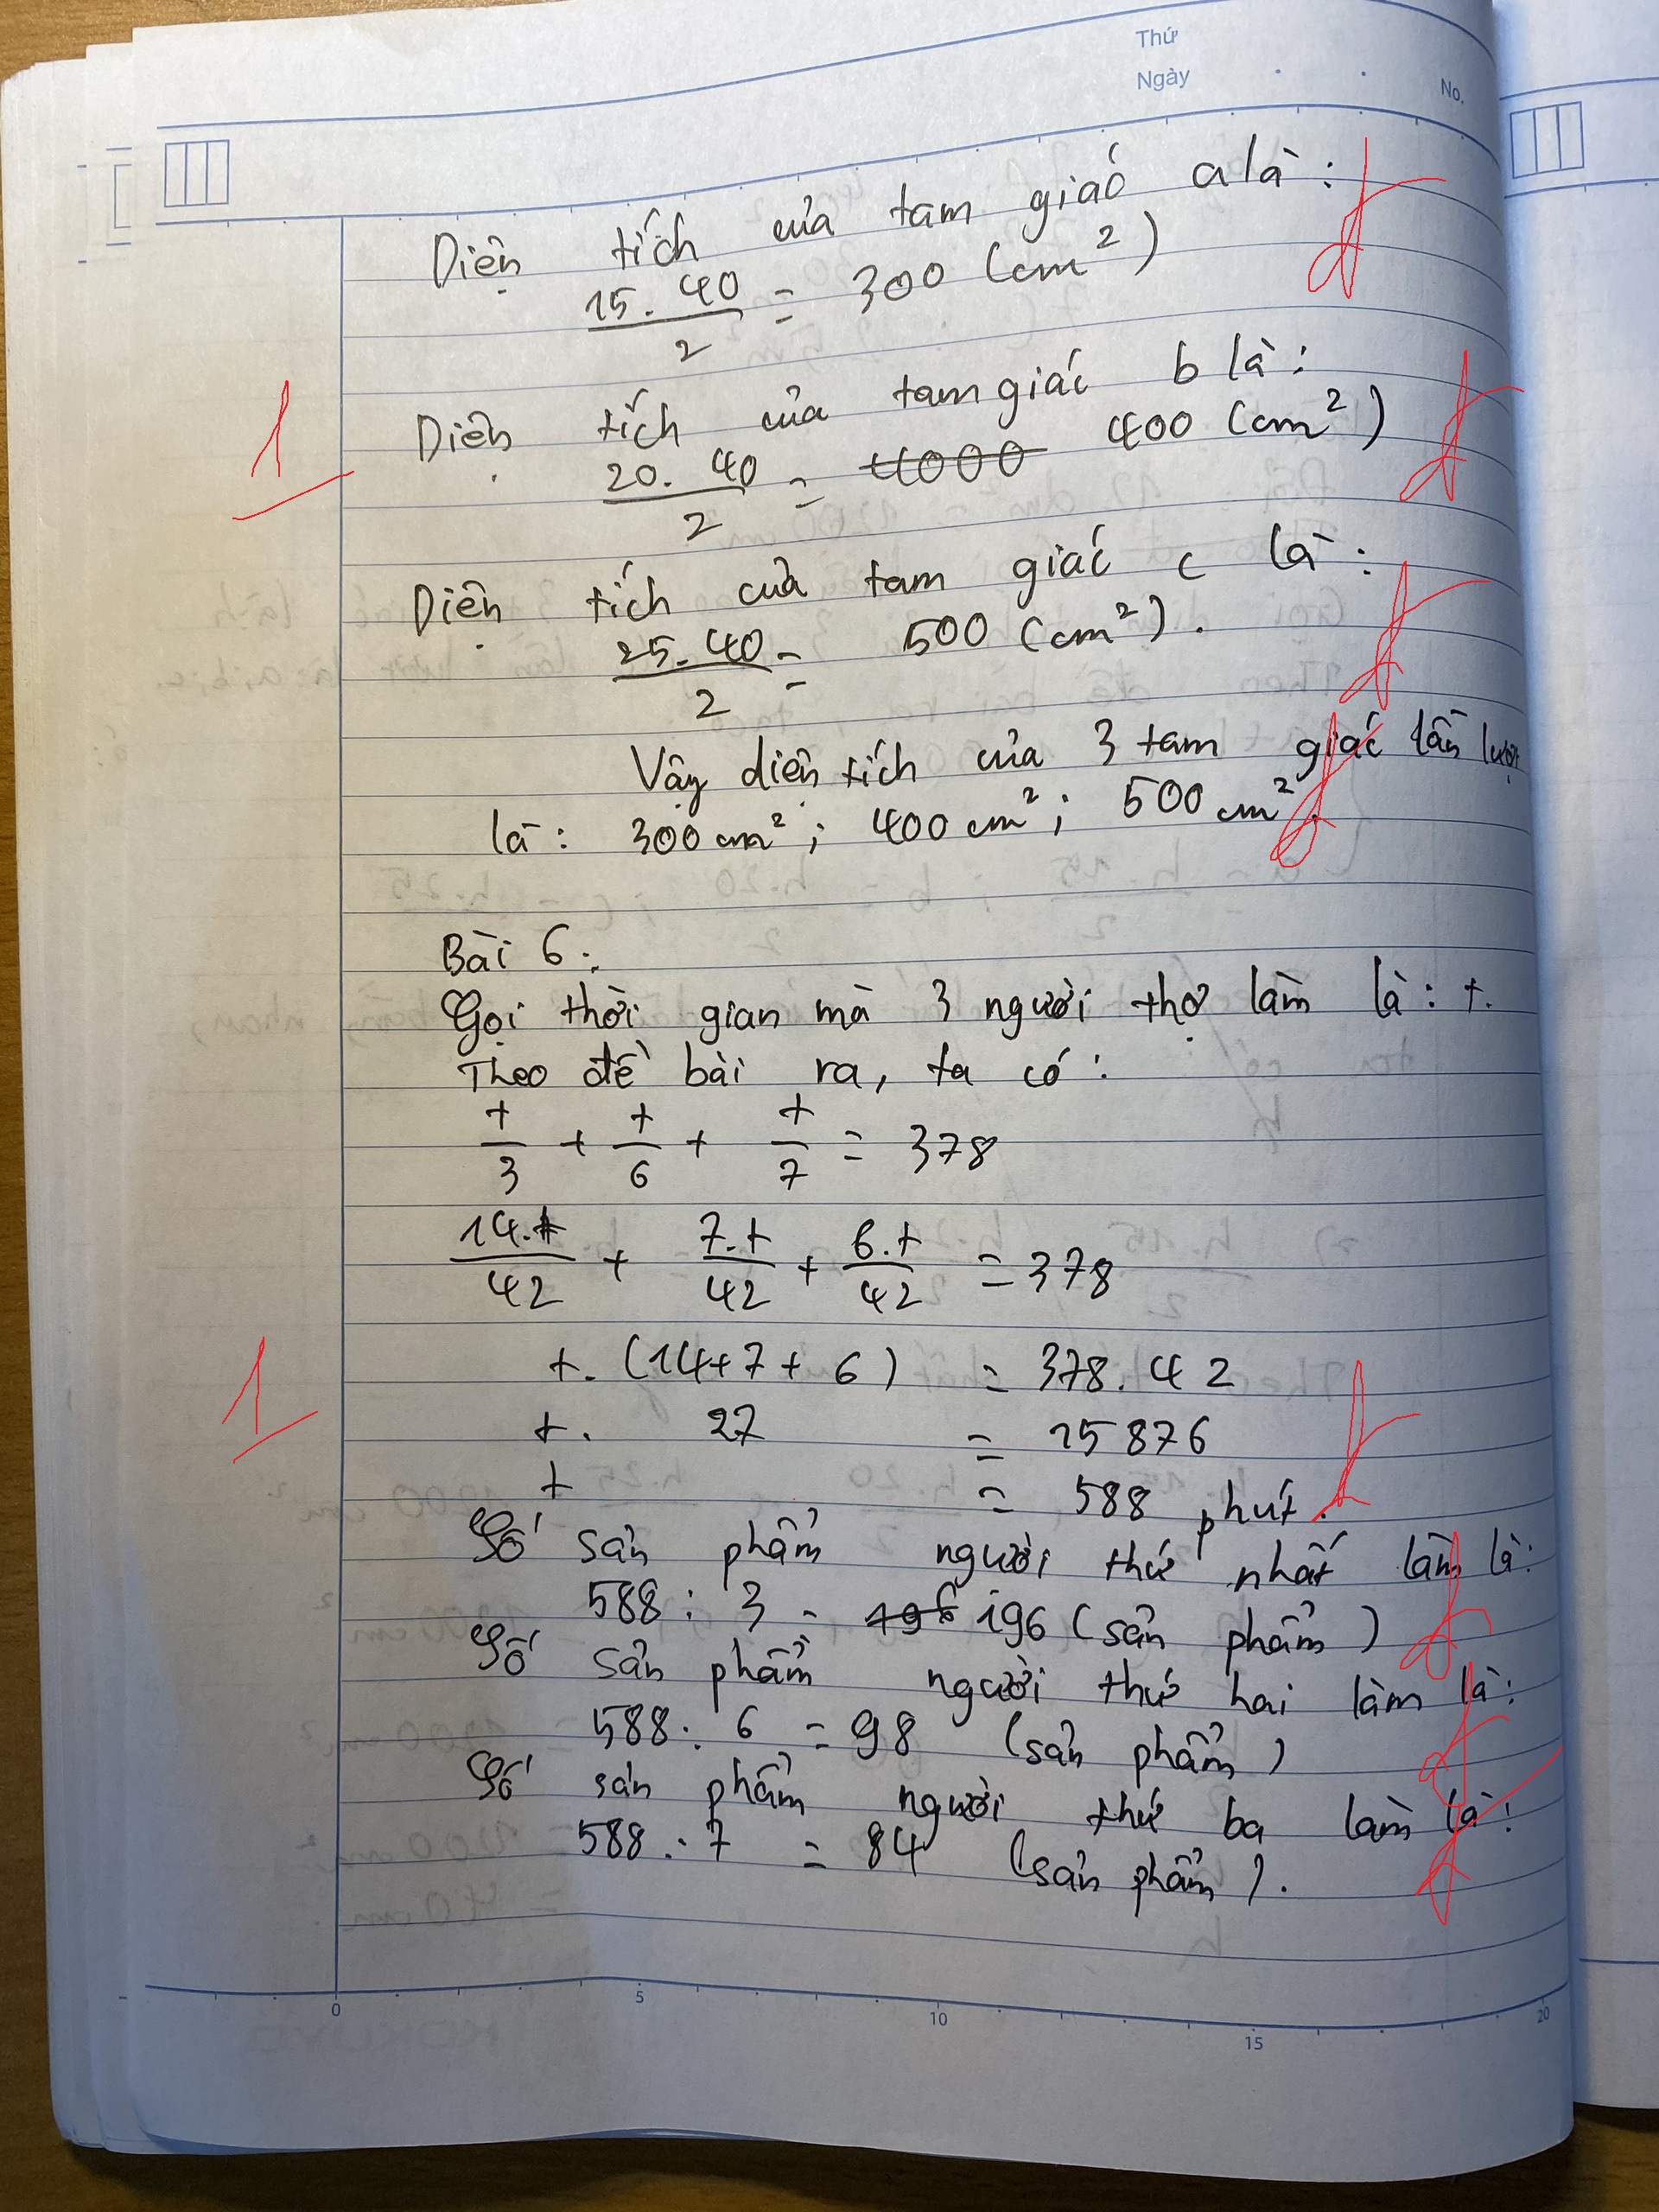 Thứ
Ngày
No.
Diện tích của tam giác a là:
15.40/2 = 300 (cm²)
1
Diện tích của tam giác b là:
20.40/2 = 4000 400 (cm²)
Diện tích của tam giác c là:
25.40/2 = 500 (cm²).
Vậy diện tích của 3 tam giác lần lượt
là: 300 cm²; 400 cm²; 500 cm².
Bài 6:
Gọi thời gian mà 3 người thợ làm là: t.
Theo đề bài ra, ta có:
t/3 + t/6 + t/7 = 378
14.t/42 + 7.t/42 + 6.t/42 = 378
t. (14+7+6) = 378.42
1
t. 27 = 15876
t = 588 phút.
Số sản phẩm người thứ nhất làm là:
588 : 3 = 196 196 (sản phẩm)
Số sản phẩm người thứ hai làm là:
588 : 6 = 98 (sản phẩm)
Số sản phẩm người thứ ba làm là:
588 : 7 = 84 (sản phẩm).
0 5 10 15 20